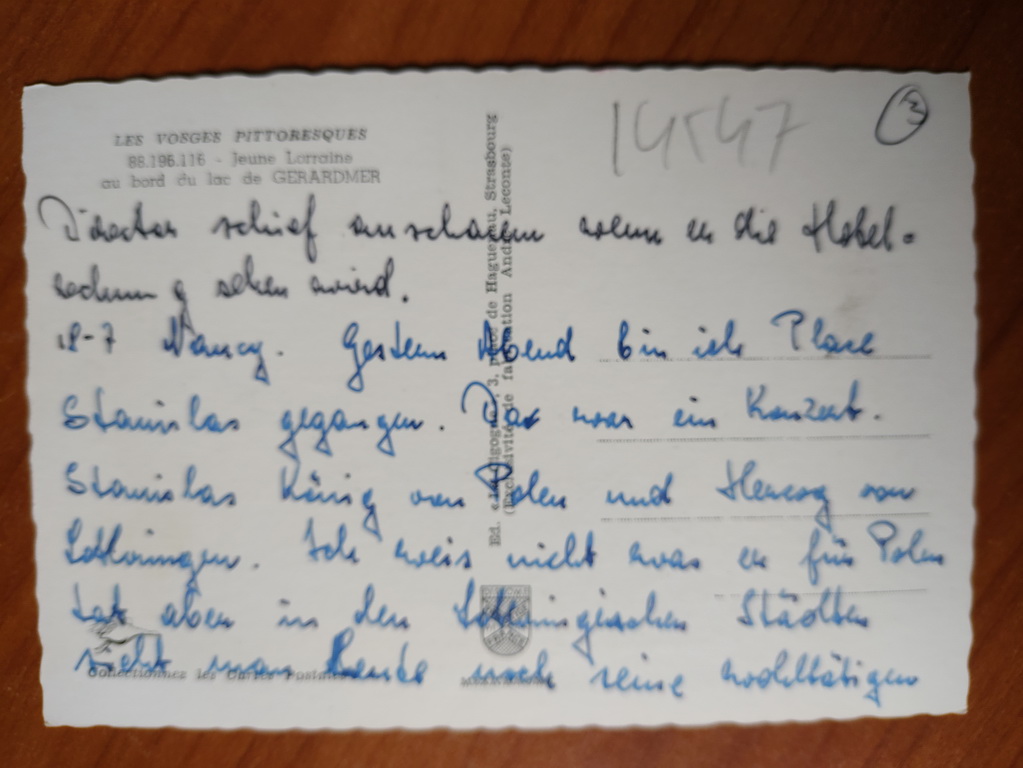 14547
3
LES VOSGES PITTORESQUES
88.196.116 - Jeune Lorraine
au bord du lac de GERARDMER
Director schief anschauen wenn er die Hotel-
rechnung sehen wird.
18-7 Nancy. Gestern Abend bin ich Place
Stanislas gegangen. Das war ein Konzert.
Stanislas König von Polen und Herzog von
Lothringen. Ich weis nicht was er für Polen
tat aber in den Lothringischen Städten
sieht man heute noch seine wohltätigen
Collectionnez les Cartes Postales
Ed. 3, de Haguenau, Strasbourg
(Exclusivité de fabrication André Leconte)